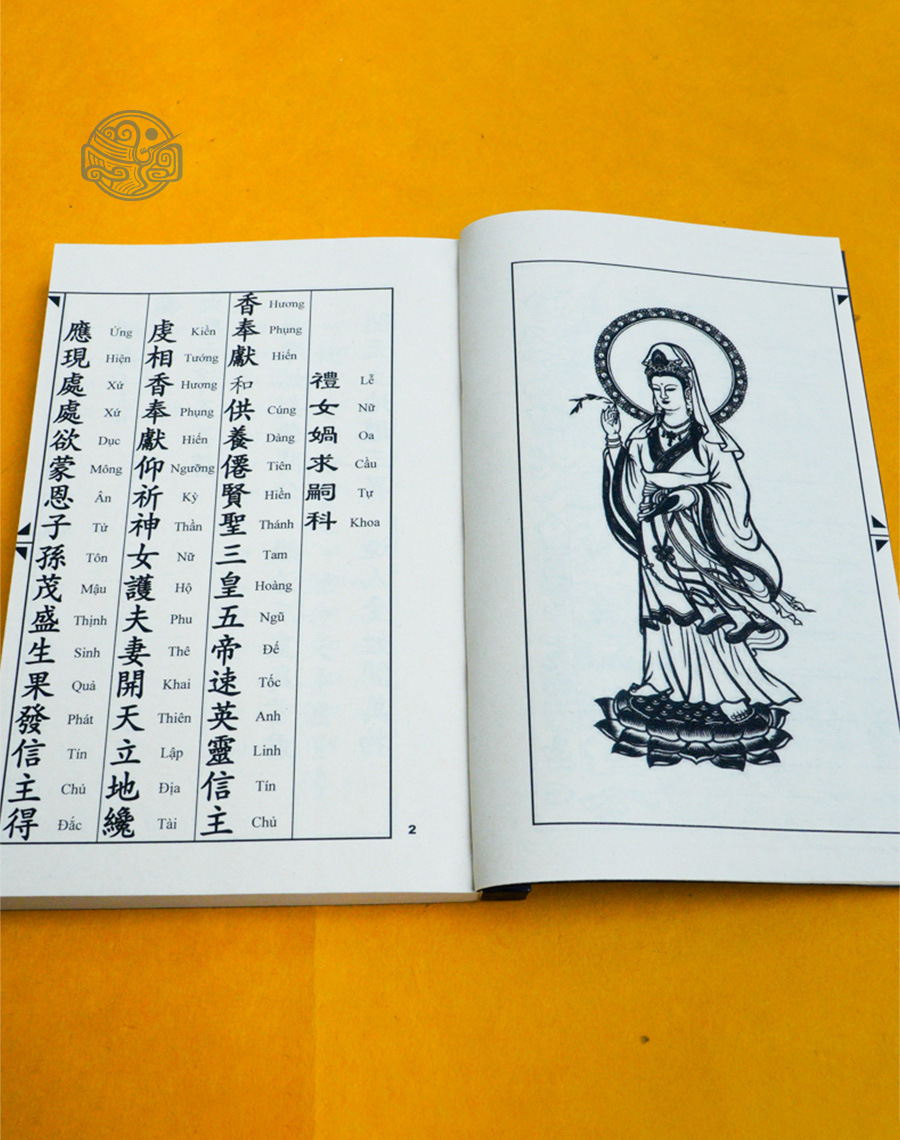 禮女媧求嗣科
Lễ Nữ Oa Cầu Tự Khoa
香奉獻和供養僊賢聖三皇五帝速英靈信主
Hương Phụng Hiến Cúng Dàng Tiên Hiền Thánh Tam Hoàng Ngũ Đế Tốc Anh Linh Tín Chủ
虔相香奉獻仰祈神女護夫妻開天立地纔
Kiền Tướng Hương Phụng Hiến Ngưỡng Kỳ Thần Nữ Hộ Phu Thê Khai Thiên Lập Địa Tài
應現處處欲蒙恩子孫茂盛生果發信主得
Ứng Hiện Xứ Xứ Dục Mông Ân Tử Tôn Mậu Thịnh Sinh Quả Phát Tín Chủ Đắc
2